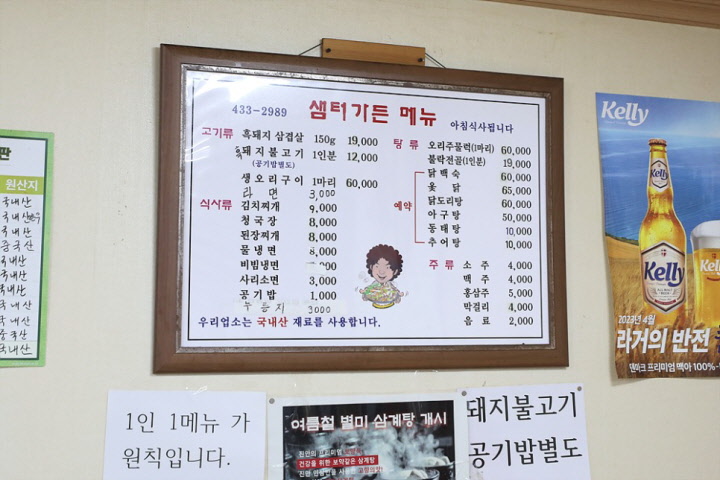 판
원산지
국내산
국내산
국내산
중국산
국내산
국내산
국내산
국내산
중국산
국내산
433-2989
샘터가든 메뉴
아침식사됩니다
고기류
흑돼지 삼겹살 150g 19,000
돼지불고기 1인분 12,000
(공기밥별도)
생오리구이 1마리 60,000
라면 3,000
식사류
김치찌개 9,000
청국장 8,000
된장찌개 8,000
물냉면 8,000
비빔냉면
사리소면 3,000
공기밥 1,000
누룽지 3000
우리업소는 국내산 재료를 사용합니다.
탕류
오리주물럭(1마리) 60,000
불락전골(1인분) 19,000
예약
닭백숙 60,000
옻닭 65,000
닭도리탕 60,000
아구탕 50,000
동태탕 10,000
추어탕 10,000
주류
소주 4,000
맥주 4,000
홍삼주 5,000
막걸리 4,000
음료 2,000
Kelly
Kelly
Kelly
2023년 4월
라거의 반전
덴마크 프리미엄 맥아 100%
1인 1메뉴 가
원칙입니다.
여름철 별미 삼계탕 개시
건강을 위한 보약같은 삼계탕
돼지불고기
공기밥별도